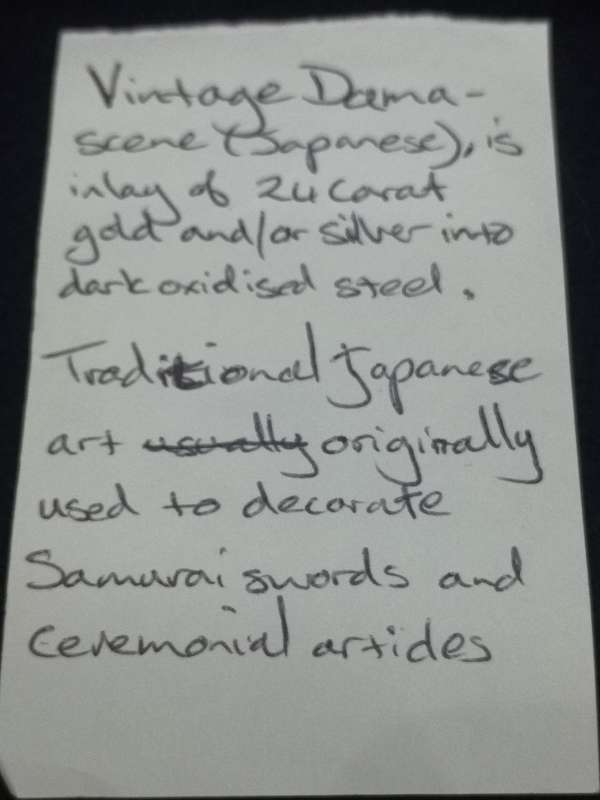 Vintage Dama-
scene (Japanese), is
inlay of 24 carat
gold and/or silver into
dark oxidised steel.
Traditional Japanese
art usually originally
used to decorate
Samurai swords and
Ceremonial articles